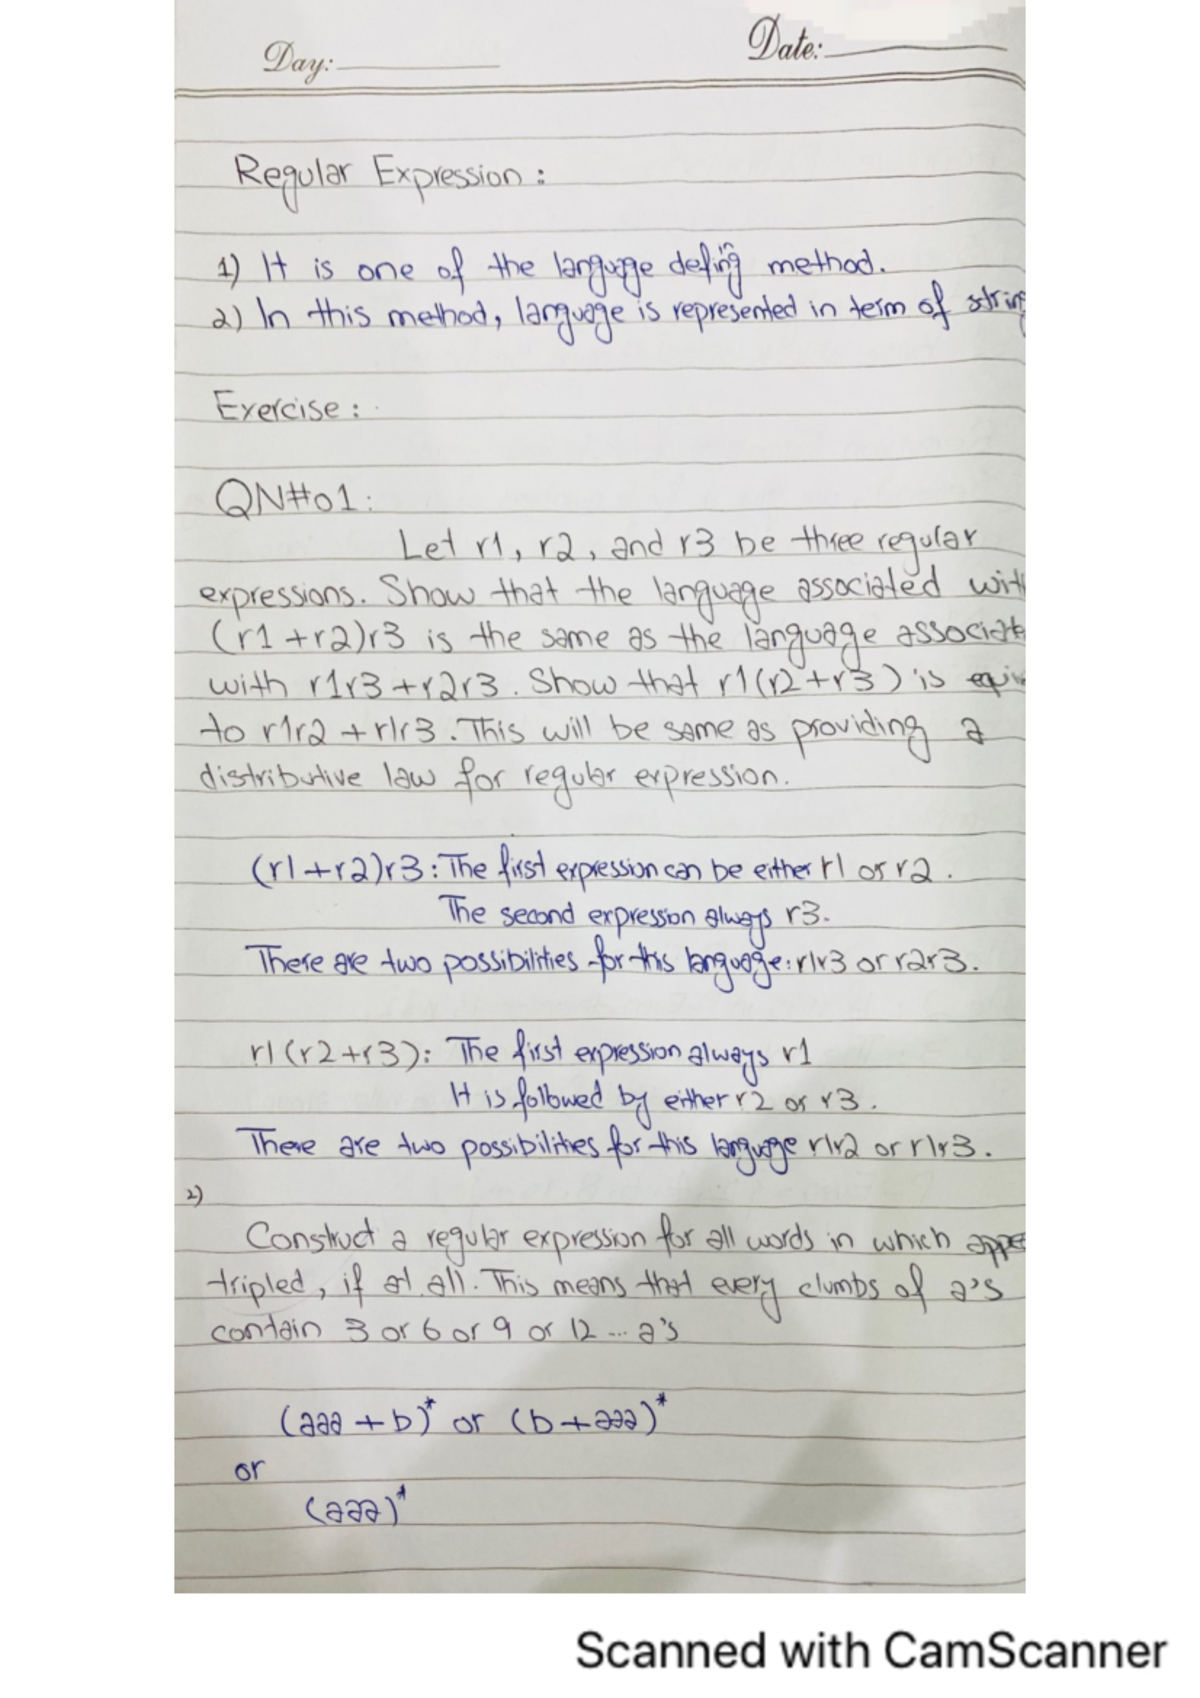 Day:
Date:
Regular Expression :
1) It is one of the language defing method.
2) In this method, language is represented in term of string
Exercise :
QN#01:
Let r1, r2, and r3 be three regular
expressions. Show that the language associated with
(r1 +r2)r3 is the same as the language associate
with r1r3 +r2r3. Show that r1(r2+r3) is equiv
to r1r2 + r1r3. This will be same as providing a
distributive law for regular expression.
(r1+r2)r3: The first expression can be either r1 or r2.
The second expression always r3.
There are two possibilities for this language: r1r3 or r2r3.
r1(r2+r3): The first expression always r1
It is followed by either r2 or r3.
There are two possibilities for this language r1r2 or r1r3.
2)
Construct a regular expression for all words in which appe
tripled, if at all. This means that every clumbs of a's
contain 3 or 6 or 9 or 12 ... a's
(aaa + b)* or (b+aaa)*
or
(aaa)*
Scanned with CamScanner